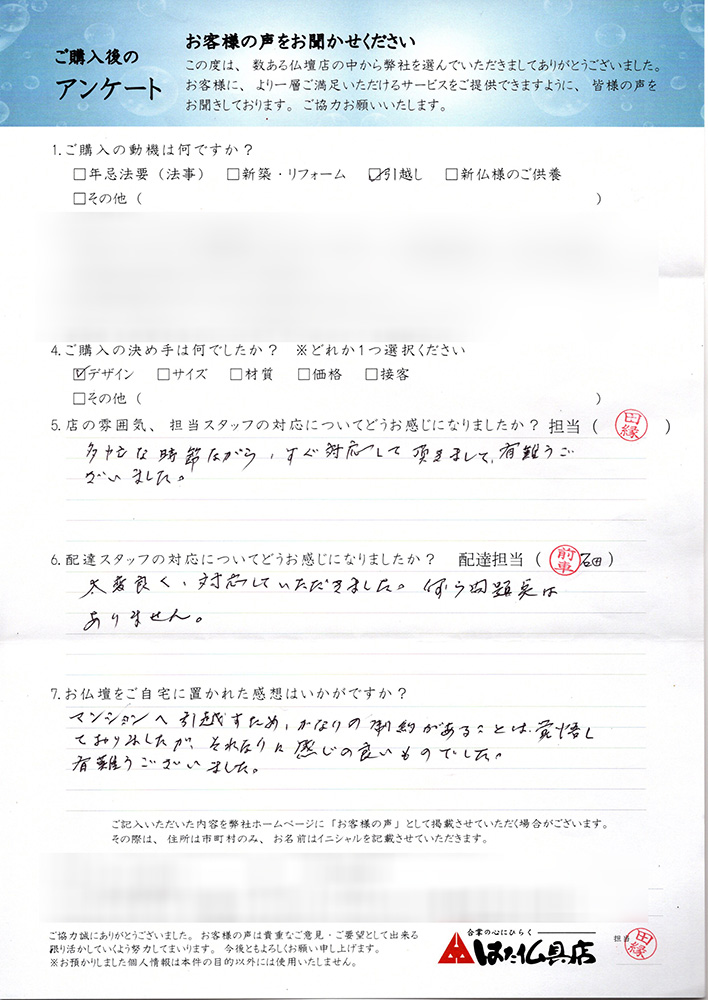 お客様の声をお聞かせください
ご購入後の
アンケート
この度は、数ある仏壇店の中から弊社を選んでいただきましてありがとうございました。
お客様に、より一層ご満足いただけるサービスをご提供できますように、皆様の声を
お聞きしております。ご協力お願いいたします。
1.ご購入の動機は何ですか？
□年忌法要（法事） □新築・リフォーム ☑引越し □新仏様のご供養
□その他（ ）
4.ご購入の決め手は何でしたか？ ※どれか1つ選択ください
☑デザイン □サイズ □材質 □価格 □接客
□その他（ ）
5.店の雰囲気、担当スタッフの対応についてどうお感じになりましたか？ 担当（ 田縁 ）
多忙な時節ながら、すぐ対応して頂きまして、有難うご
ざいました。
6.配達スタッフの対応についてどうお感じになりましたか？ 配達担当（ 前車 石田）
大変良く、対応していただきました。何ら問題点は
ありません。
7.お仏壇をご自宅に置かれた感想はいかがですか？
マンションへ引越すため、かなりの制約があることは覚悟し
ておりましたが、それなりに感じの良いものでした。
有難うございました。
ご記入いただいた内容を弊社ホームページに「お客様の声」として掲載させていただく場合がございます。
その際は、住所は市町村のみ、お名前はイニシャルを記載させていただきます。
ご協力誠にありがとうございました。お客様の声は貴重なご意見・ご要望として出来る
限り活かしていくよう努力してまいります。今後ともよろしくお願い申し上げます。
※お預かりしました個人情報は本件の目的以外には使用いたしません。
合掌の心にひらく
はた仏具店
担当 田縁